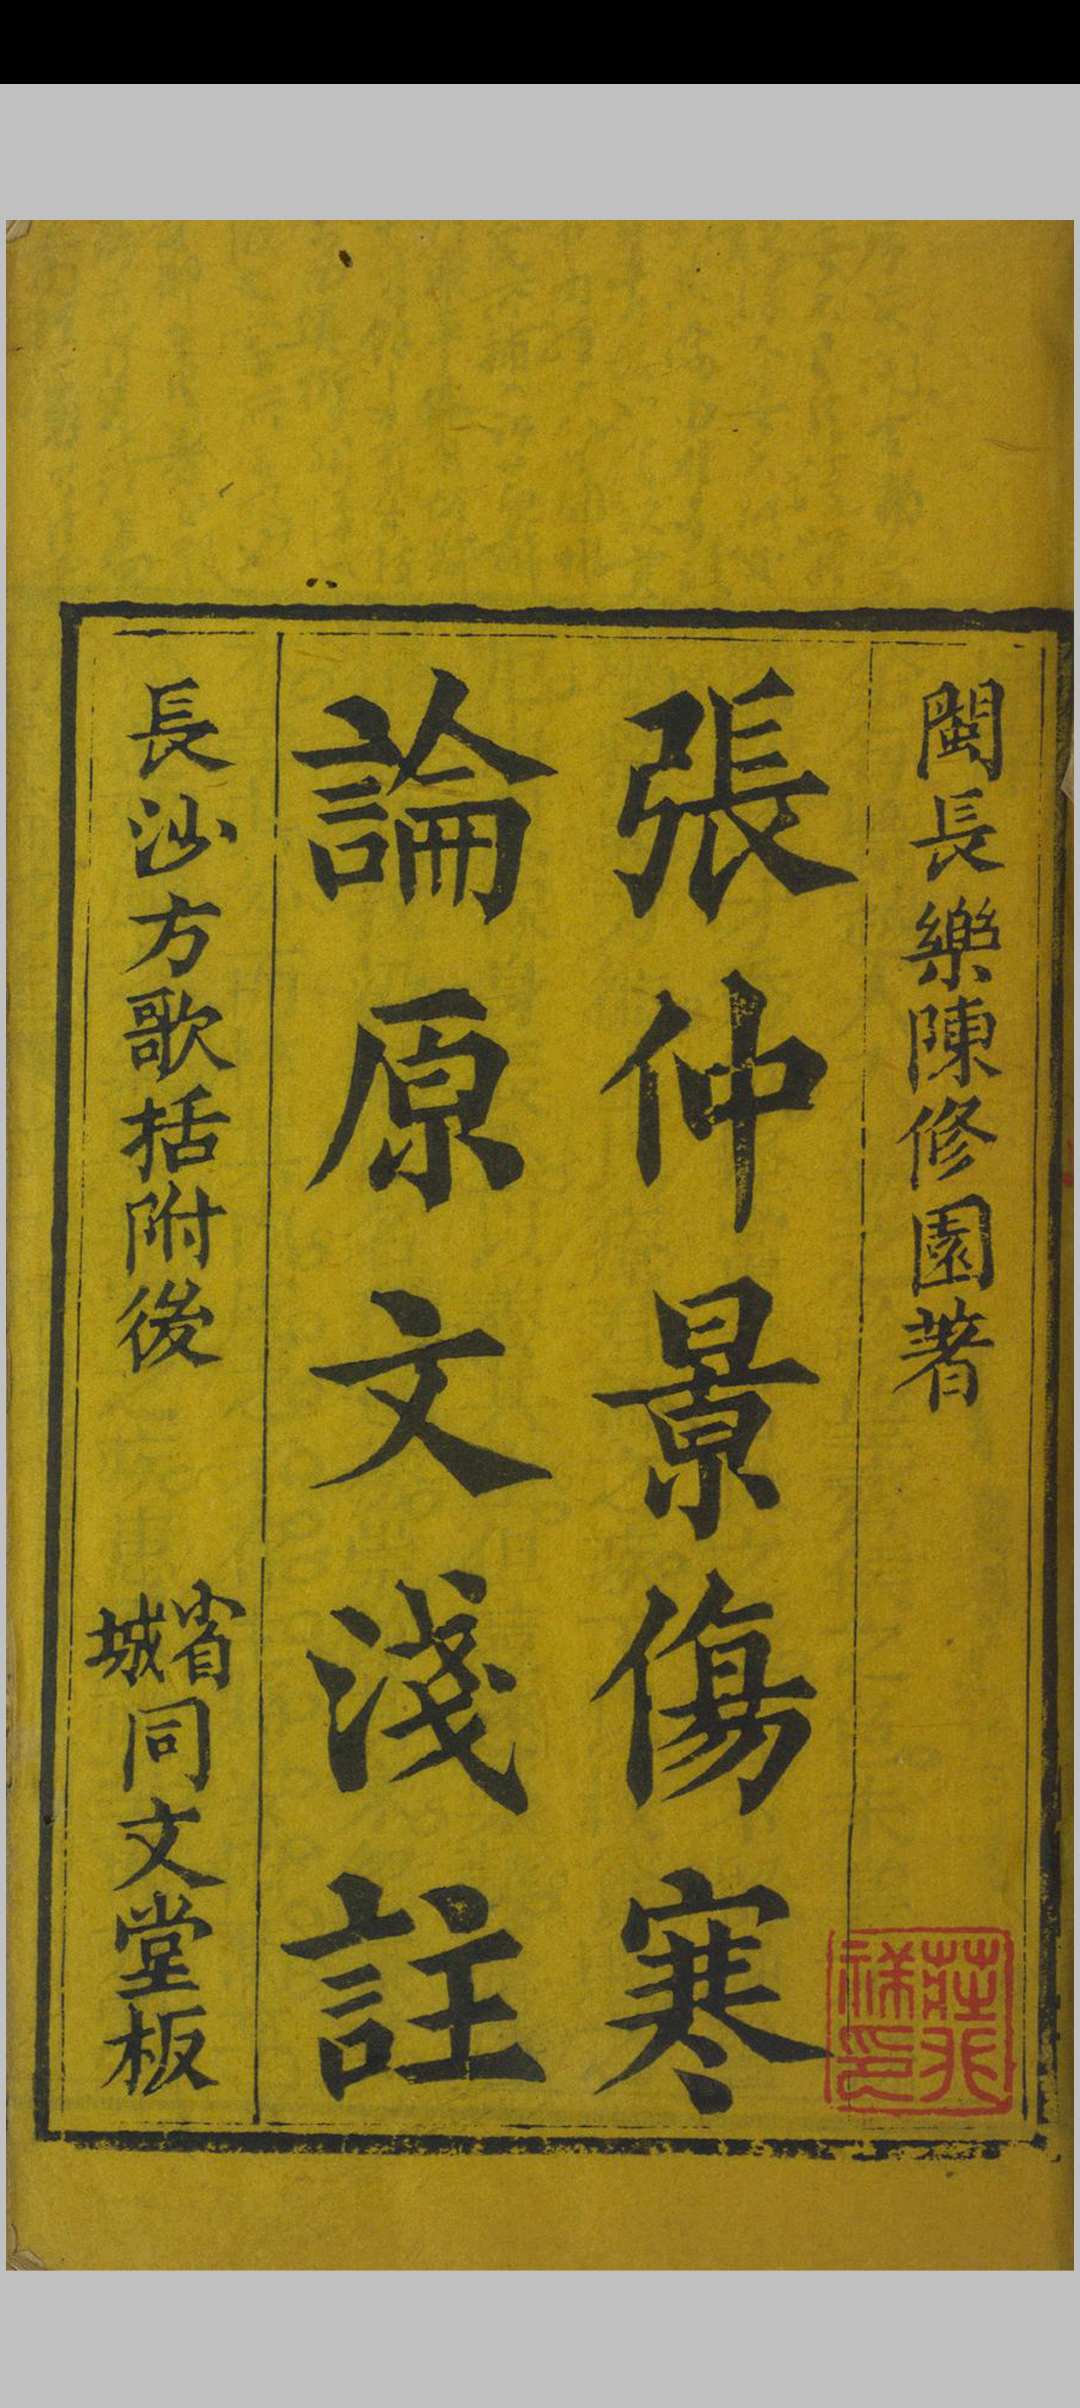 閩長樂陳修園著
張仲景傷寒
論原文淺註
長沙方歌括附後
省城同文堂板